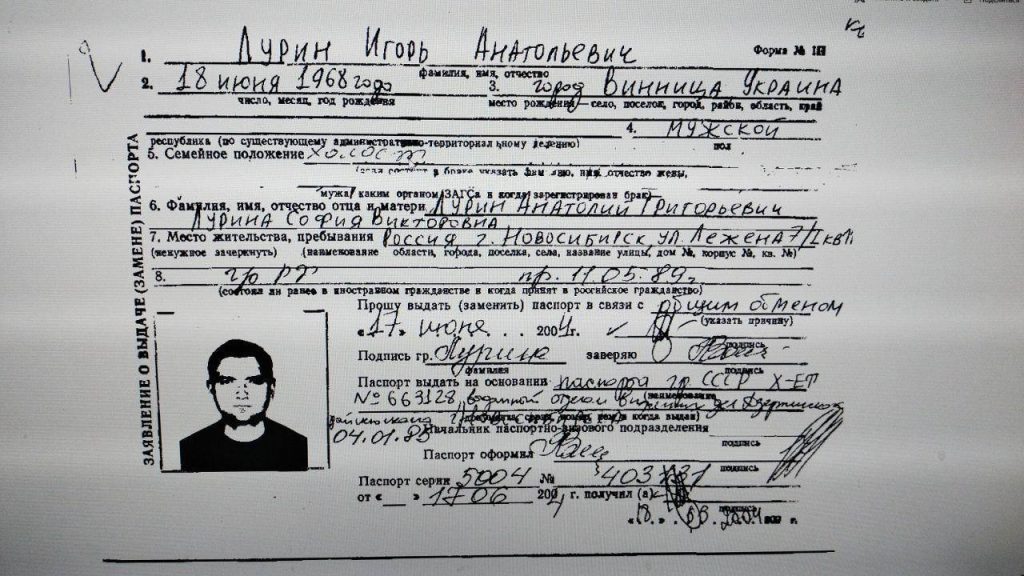 1. Лурин Игорь Анатольевич Форма №
фамилия, имя, отчество
2. 18 июня 1968 года 3. город Винница Украина
число, месяц, год рождения место рождения — село, поселок, город, район, область, край
4. мужской
республика (по существующему административно-территориальному делению) пол
5. Семейное положение холост
(если состоит в браке указать фамилию, имя, отчество жены,
мужа, каким органом ЗАГСа и когда зарегистрирован брак)
6. Фамилия, имя, отчество отца и матери Лурин Анатолий Григорьевич
Лурина София Викторовна
7. Место жительства, пребывания Россия г. Новосибирск, ул Лежена 7/1
(ненужное зачеркнуть) (наименование области, города, поселка, села, название улицы, дом №, корпус №, кв. №)
8. гр РФ пр. 11.05.89г
(состоял ли ранее в иностранном гражданстве и когда принят в российское гражданство)
ЗАЯВЛЕНИЕ О ВЫДАЧЕ (ЗАМЕНЕ) ПАСПОРТА
Прошу выдать (заменить) паспорт в связи с общим обменом
(указать причину)
«17» июня 2004г.
подпись
Подпись гр. Лурина заверяю
фамилия подпись
Паспорт выдать на основании паспорта гр СССР X-ЕТ
№ 663128, выданный отделом
04.01.85
Начальник паспортно-визового подразделения
подпись
Паспорт оформил
подпись
Паспорт серии 5004 №
от « » 17 06 2004 г. получил (а)
подпись
«18» 2004 г.